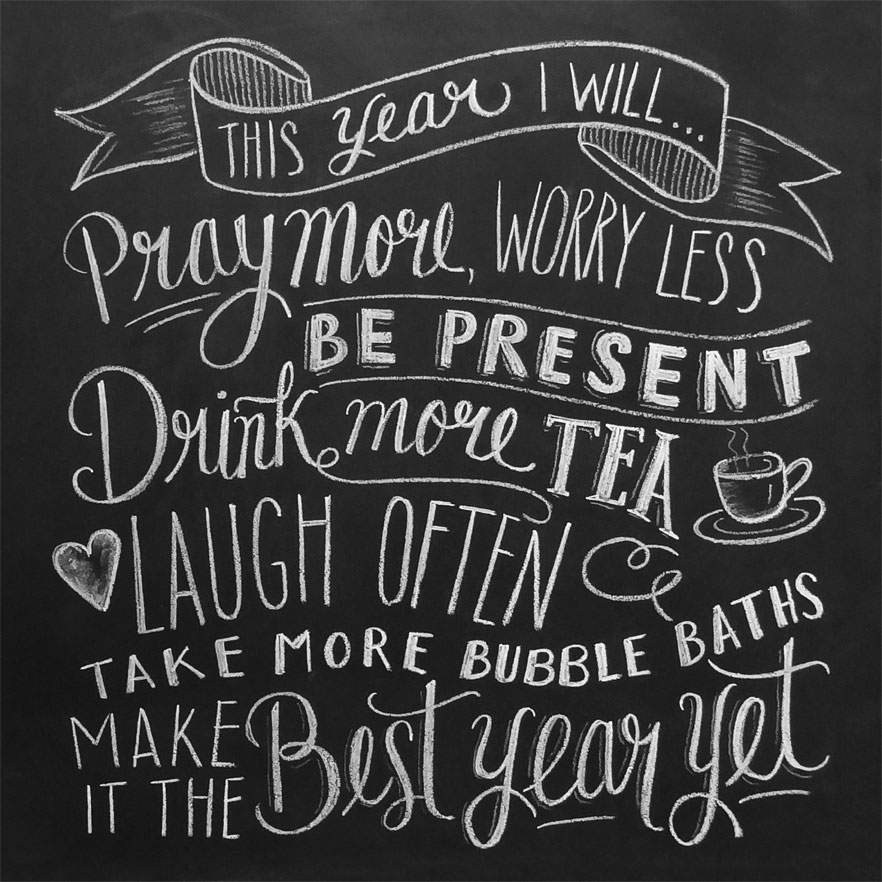 THIS year I WILL...
Pray more, WORRY LESS
BE PRESENT
Drink more TEA
LAUGH OFTEN
TAKE MORE BUBBLE BATHS
MAKE
IT THE Best year yet